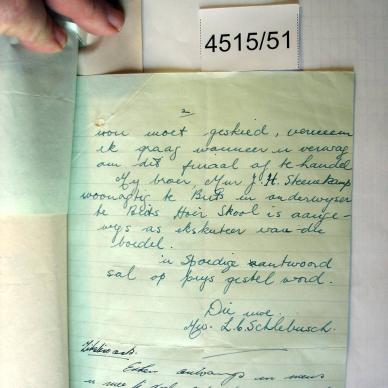 4515/51
2
van moet geskied, verneem
ik graag wanneer u verwag
om dit finaal af te handel
My broer, Mnr J. H. Steenkamp
woonagtig te Brits in onderwyser
te Brits Hoër Skool is aange-
wys as eksekuteur van die
boedel.
'n Spoedige antwoord
sal op prys gestel word.
Die uwe,
Mev. L. C. Schlebusch.
ontvangs